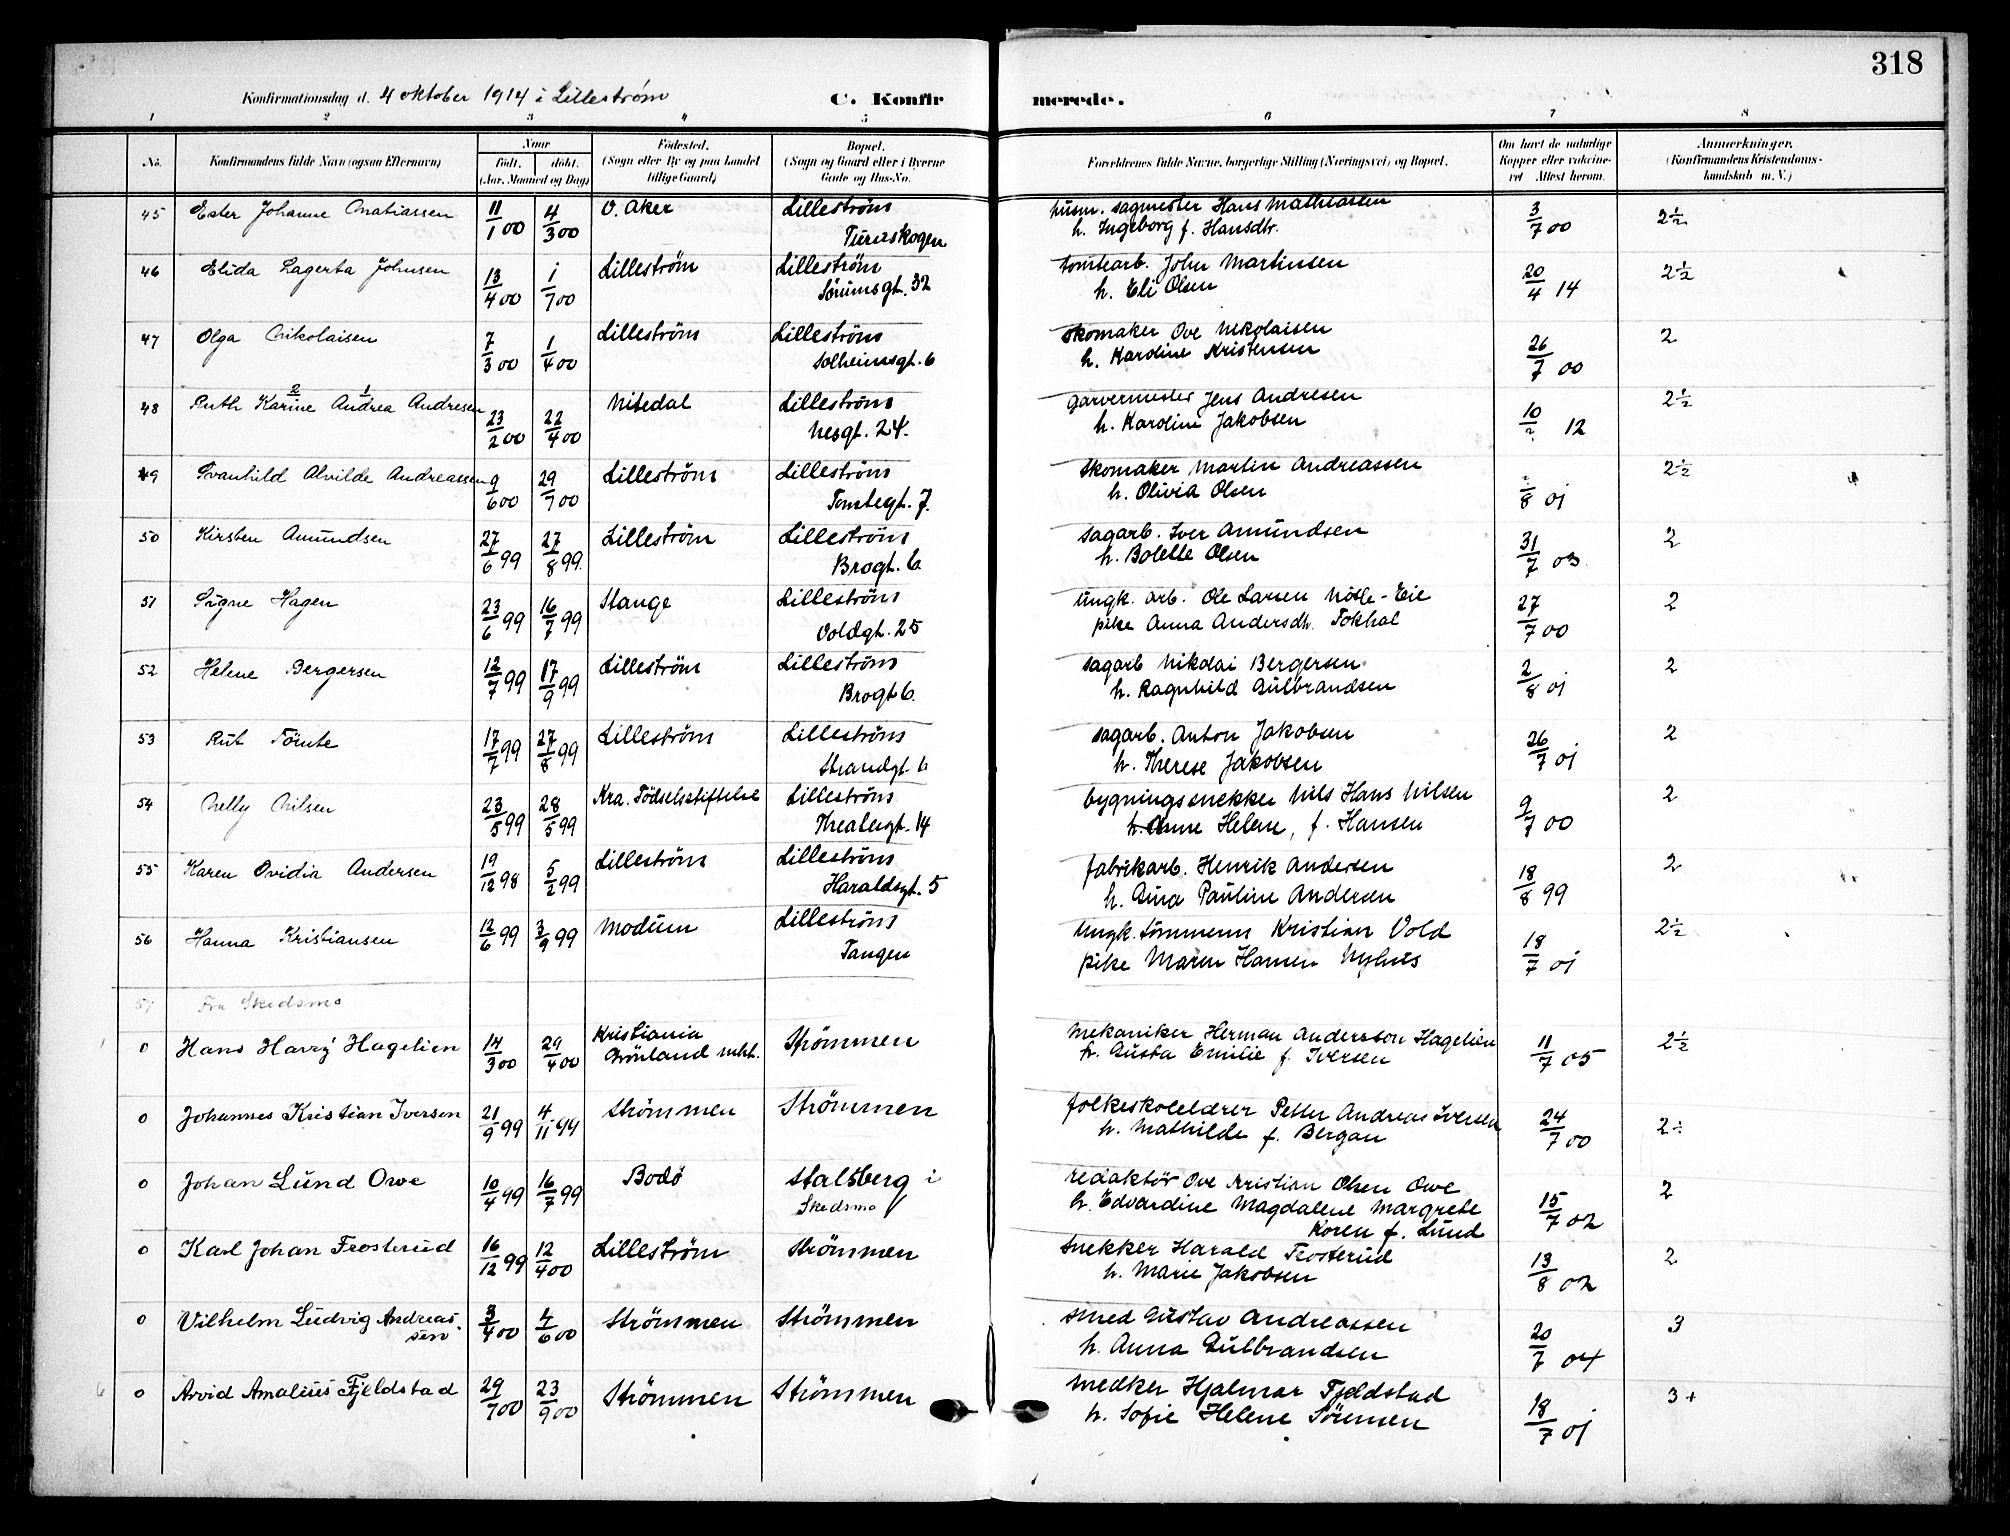 318
Konfirmationsdag d. 4 oktober 1914 i Lilleström C. Konfirmerede.
1 2 3 4 5 6 7 8
No. Konfirmandens fulde Navn (ogsaa Efternavn) Naar født. døbt. (Aar, Maaned og Dag) Fødested. (Sogn eller By og paa Landet tillige Gaard) Bopæl. (Sogn og Gaard eller i Byerne Gade og Hus-No. Forældrenes fulde Navne, borgerlige Stilling (Næringsvei) og Bopæl. Om havt de naturlige Kopper eller vaccineret Attest herom. Anmerkninger. (Konfirmandens Kristendomskundskab m. V.)
45 Ester Johanne Matiassen 11/1 00 4/3 00 V. Aker Lilleström husm. sagmester Hans Mathiassen 3/7 00 2½
Tærudskogen h. Ingeborg f. Hansdtr.
46 Elida Lagerta Johnsen 13/4 00 1/7 00 Lilleström Lilleström tomtearb. John Martinsen 20/4 14 2½
Sörumsgt. 32 h. Eli Olsen
47 Olga Nikolaisen 7/3 00 1/4 00 Lilleström Lilleström skomaker Ove Nikolaisen 26/7 00 2
Solheimsgt. 6 h. Karoline Kristensen
48 Ruth Karine 2 Andrea 1 Andresen 23/2 00 22/4 00 Nitedal Lilleström garvermester Jens Andresen 10/2 12 2½
Nesgt. 24. h. Karoline Jakobsen
49 Svanhild Alvilde Andreassen 9/6 00 29/7 00 Lilleström Lilleström skomaker Martin Andreassen 2/8 01 2½
Tomtegt. 7. h. Olivia Olsen
50 Kirsten Amundsen 27/6 99 27/8 99. Lilleström Lilleström sagarb. Iver Amundsen 31/7 03 2
Brogt. 6. h. Bolette Olsen
51 Signe Hagen 23/6 99 16/7 99 Stange Lilleström ungk. arb. Ole Larsen Nötle-Eie 27/7 00 2
Voldgt. 25 pike Anna Andersdtr. Tokhol
52 Helene Bergersen 12/7 99 17/9 99 Lilleström Lilleström sagarb Nikolai Bergersen 2/8 01 2
Brogt 6. h. Ragnhild Gulbrandsen
53 Rut Tömte 17/7 99 27/8 99 Lilleström Lilleström sagarb. Anton Jakobsen 26/7 01 2
Strandgt. 6 h. Therese Jakobsen
54 Nelly Nilsen 23/5 99 28/5 99 Kra. Födselsstiftelse Lilleström bygningssnekker Nils Hans Nilsen 9/7 00 2
Theatergt. 14 h. Anne Helene, f. Hansen
55 Karen Ovidia Andersen 19/12 98 5/2 99 Lilleström Lilleström fabrikarb. Henrik Andersen 18/8 99 2
Haraldsgt. 5 h. Gina Pauline Andersen
56 Hanna Kristiansen 12/6 99 3/9 99 Modum Lilleström ungk. tömmerm Kristian Vold 18/7 01 2½
Tangen pike Maren Hansen Nyhus
57 Fra Skedsmo
0 Hans Harry Hagelien 14/3 00 29/4 00 Kristiania Strömmen mekaniker Herman Andersson Hagelien 11/7 05 2½
Grönland mht. h. Gusta Emilie f. Iversen
0 Johannes Kristian Iversen 21/9 99 4/11 99 Strömmen Strömmen folkeskolelærer Petter Andreas Iversen 24/7 00 2÷
h. Mathilde f. Bergan
0 Johan Lund Owe 10/4 99 16/7 99 Bodö Stalsberg i redaktör Ove Kristian Olsen Owe 15/7 02 2
Skedsmo h. Edvardine Magdalene Margrete
Koren f. Lund
0 Karl Johan Frosterud 16/12 99 12/4 00 Lilleström Strömmen snekker Harald Frosterud 13/8 02 2
h. Marie Jakobsen
0 Vilhelm Ludvig Andreas- 3/4 00 4/6 00 Strömmen Strömmen smed Gustav Andreassen 20/7 04 3
sen h. Anna Gulbrandsen
0 Arvid Amalius Fjeldstad 29/7 00 23/9 00 Strömmen Strömmen Hjalmar Fjeldstad 18/7 01 3+
h. Sofie Helene Sörensen